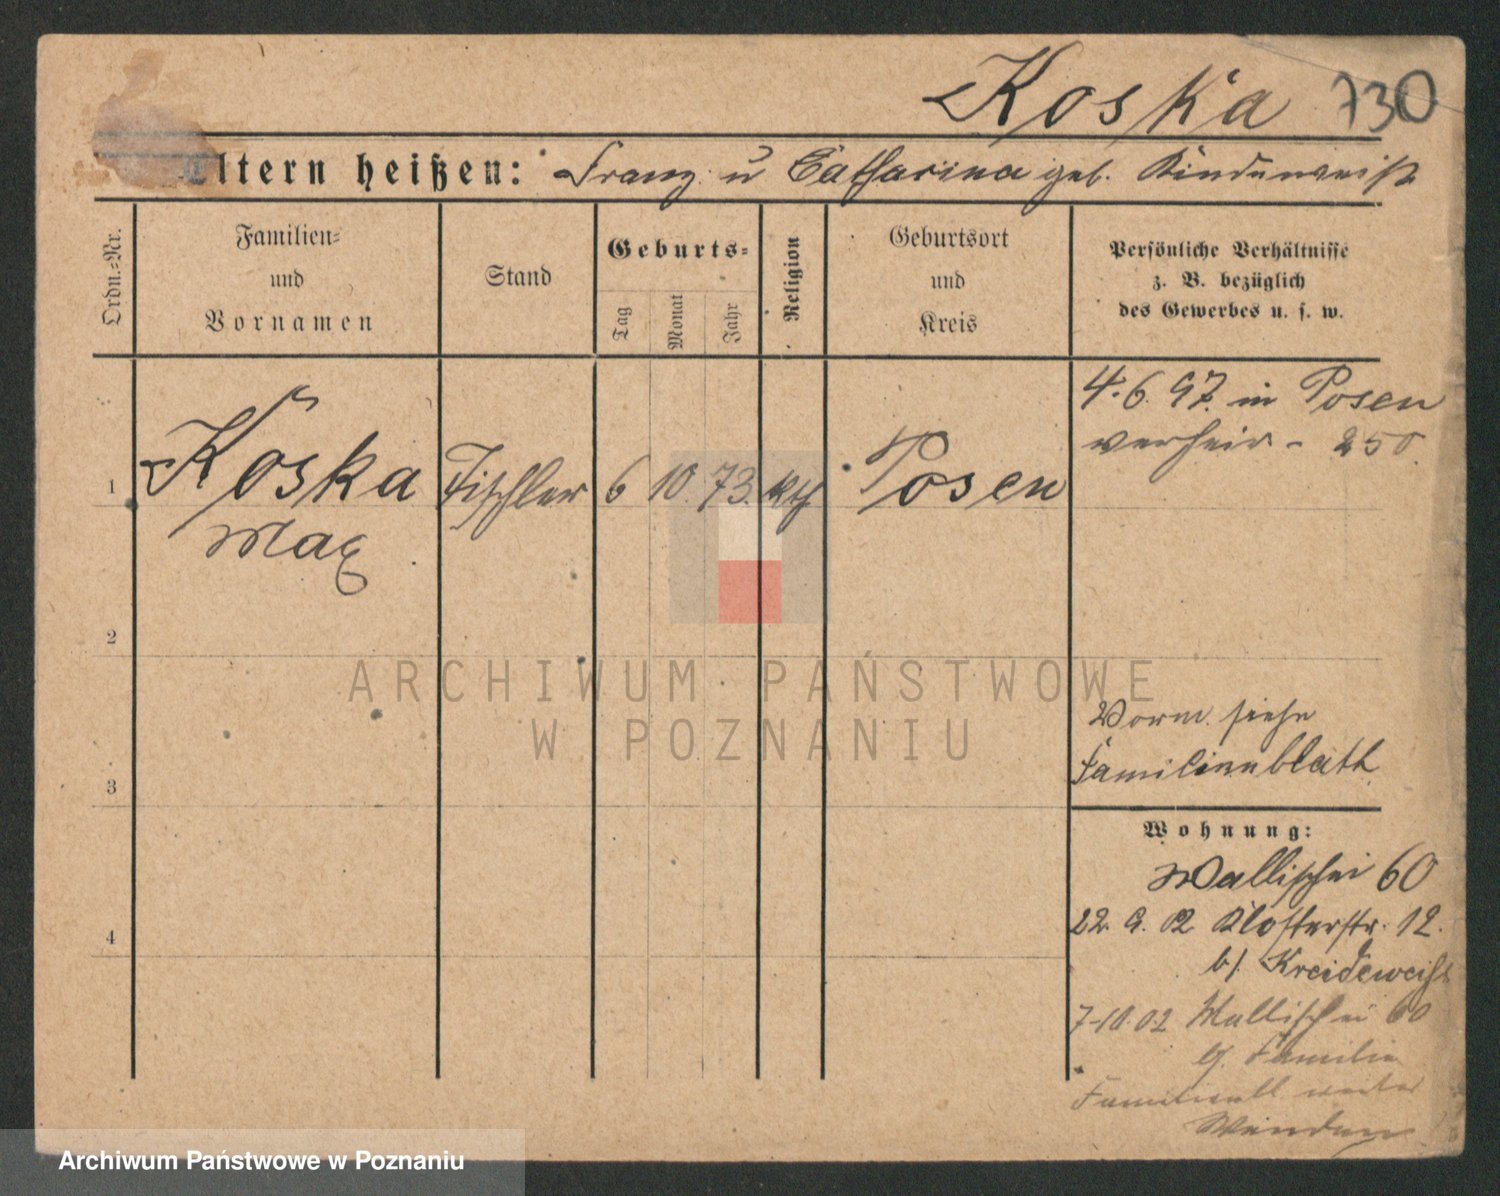 Koska 730
Eltern heißen: Franz u Catharina geb.
Ordn.=Nr.
Familien=
und
Vornamen
Stand
Geburts=
Tag
Monat
Jahr
Religion
Geburtsort
und
Kreis
Persönliche Verhältnisse
z. B. bezüglich
des Gewerbes u. s. w.
1
Koska
Max
Tischler
6 10. 73. kth
Posen
4. 6. 97. in Posen
verheir - 250.
2
3
4
Vorm. siehe
Familienblatt
Wohnung:
Wallischei 60
22. 9. 02 Klosterstr. 12.
b/. Kreideweiß
7-10.02 Wallischei 60
Familie
ARCHIWUM PAŃSTWOWE
W POZNANIU
Archiwum Państwowe w Poznaniu